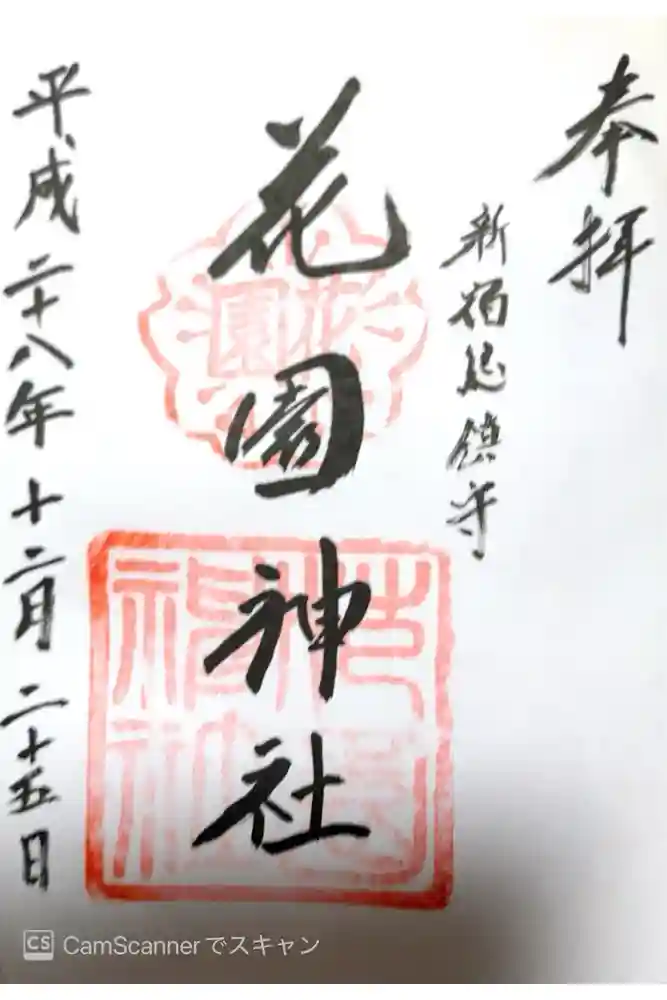 奉拝
新宿総鎮守
花園
花園神社
花園神社
平成二十八年十二月二十五日
CS CamScannerでスキャン